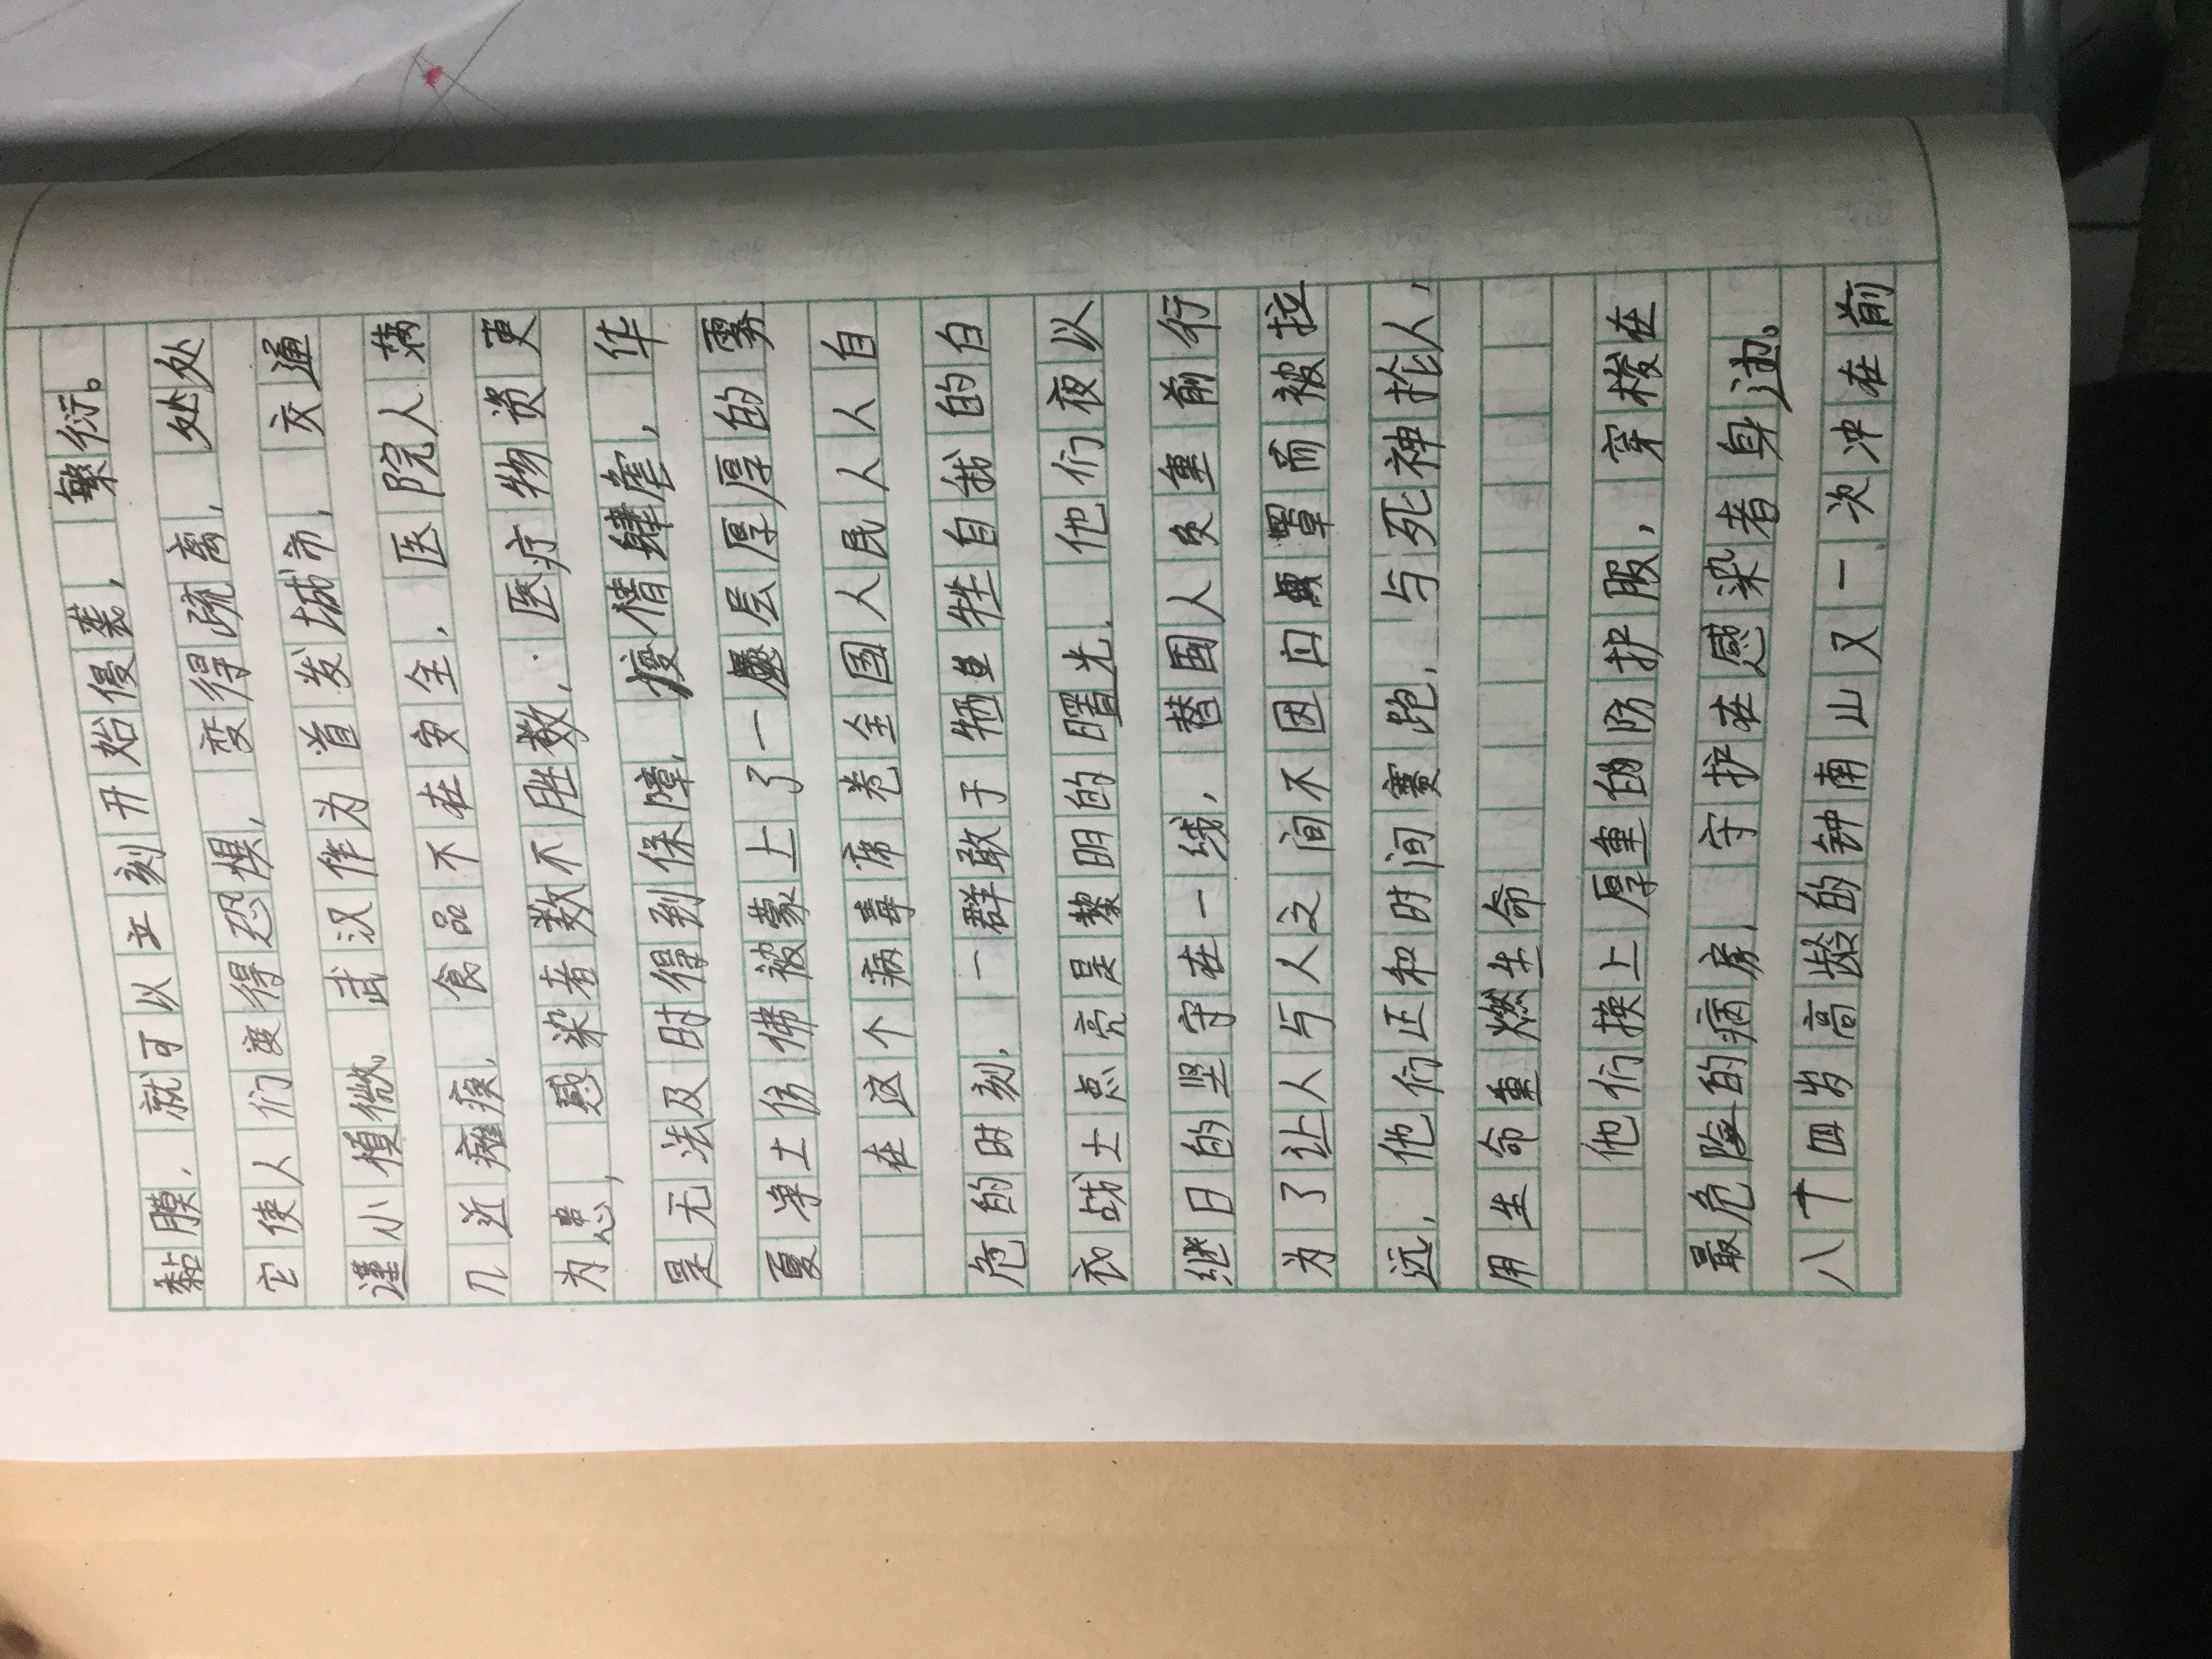 黏膜，就可以立刻开始侵袭，繁衍。
它使人们变得恐惧，变得疏离，处处
谨小慎微。武汉作为首发城市，交通
几近瘫痪，食品不在安全，医院人满
为患，感染者数不胜数，医疗物资更
是无法及时得到保障，疫情肆虐，华
夏净土仿佛被蒙上了一层厚厚的雾
在这个病毒席卷全国人民人人自
危的时刻，一群敢于牺牲自我的白
衣战士点亮是黎明的曙光，他们夜以
继日的坚守在一线，替国人负重前行
为了让人与人之间不因口罩而被拉
远，他们正和时间赛跑，与死神抢人，
用生命重燃生命
他们换上厚重的防护服，穿梭在
最危险的病房，守护在感染者身边。
八十四岁高龄的钟南山又一次冲在前